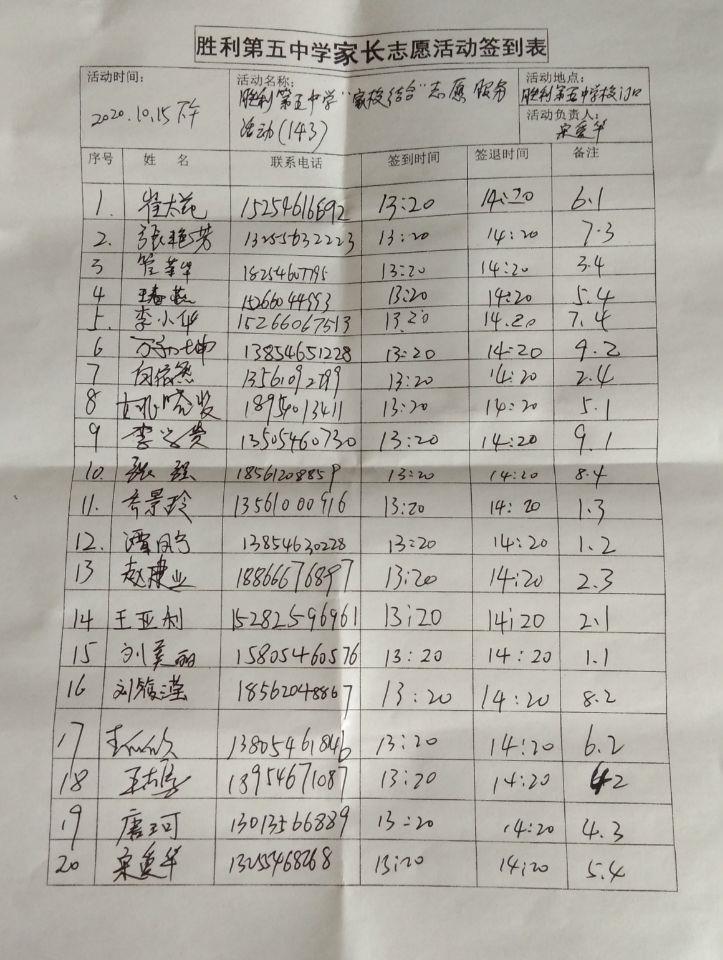 胜利第五中学家长志愿活动签到表
活动时间: 活动名称: 活动地点:
2020.10.15下午 胜利第五中学"家校结合"志愿服务 胜利第五中学校门口
活动(143) 活动负责人:
宋爱华
序号 姓 名 联系电话 签到时间 签退时间 备注
1. 13:20 14:20 6.1
2. 张艳芳 13255632223 13:20 14:20 7.3
3 管华 18254607795 13:20 14:20 3.4
4 王春燕 15266044993 13:20 14:20 5.4
5. 李小华 15266067513 13:20 14.20 7.4
6 13854651228 13:20 14:20 9.2
7 13:20 14:20 2.4
8 18954013411 13:20 14:20 5.1
9 李贵 13505460730 13:20 14:20 9.1
10. 张强 18561208859 13:20 14:20 8.4
11. 齐景玲 13561000916 13:20 14:20 1.3
12. 谭风宁 13854630228 13:20 14:20 1.2
13 赵建业 18866676897 13:20 14:20 2.3
14 王亚利 15282596961 13:20 14:20 2.1
15 刘美丽 15805460576 13:20 14:20 1.1
16 刘馥滢 18562048867 13:20 14:20 8.2
17 13805461846 13:20 14:20 6.2
18 13954671087 13:20 14:20 4.2
19 唐珂 13013566889 13:20 14:20 4.3
20 宋爱华 13255468268 13:20 14:20 5.4